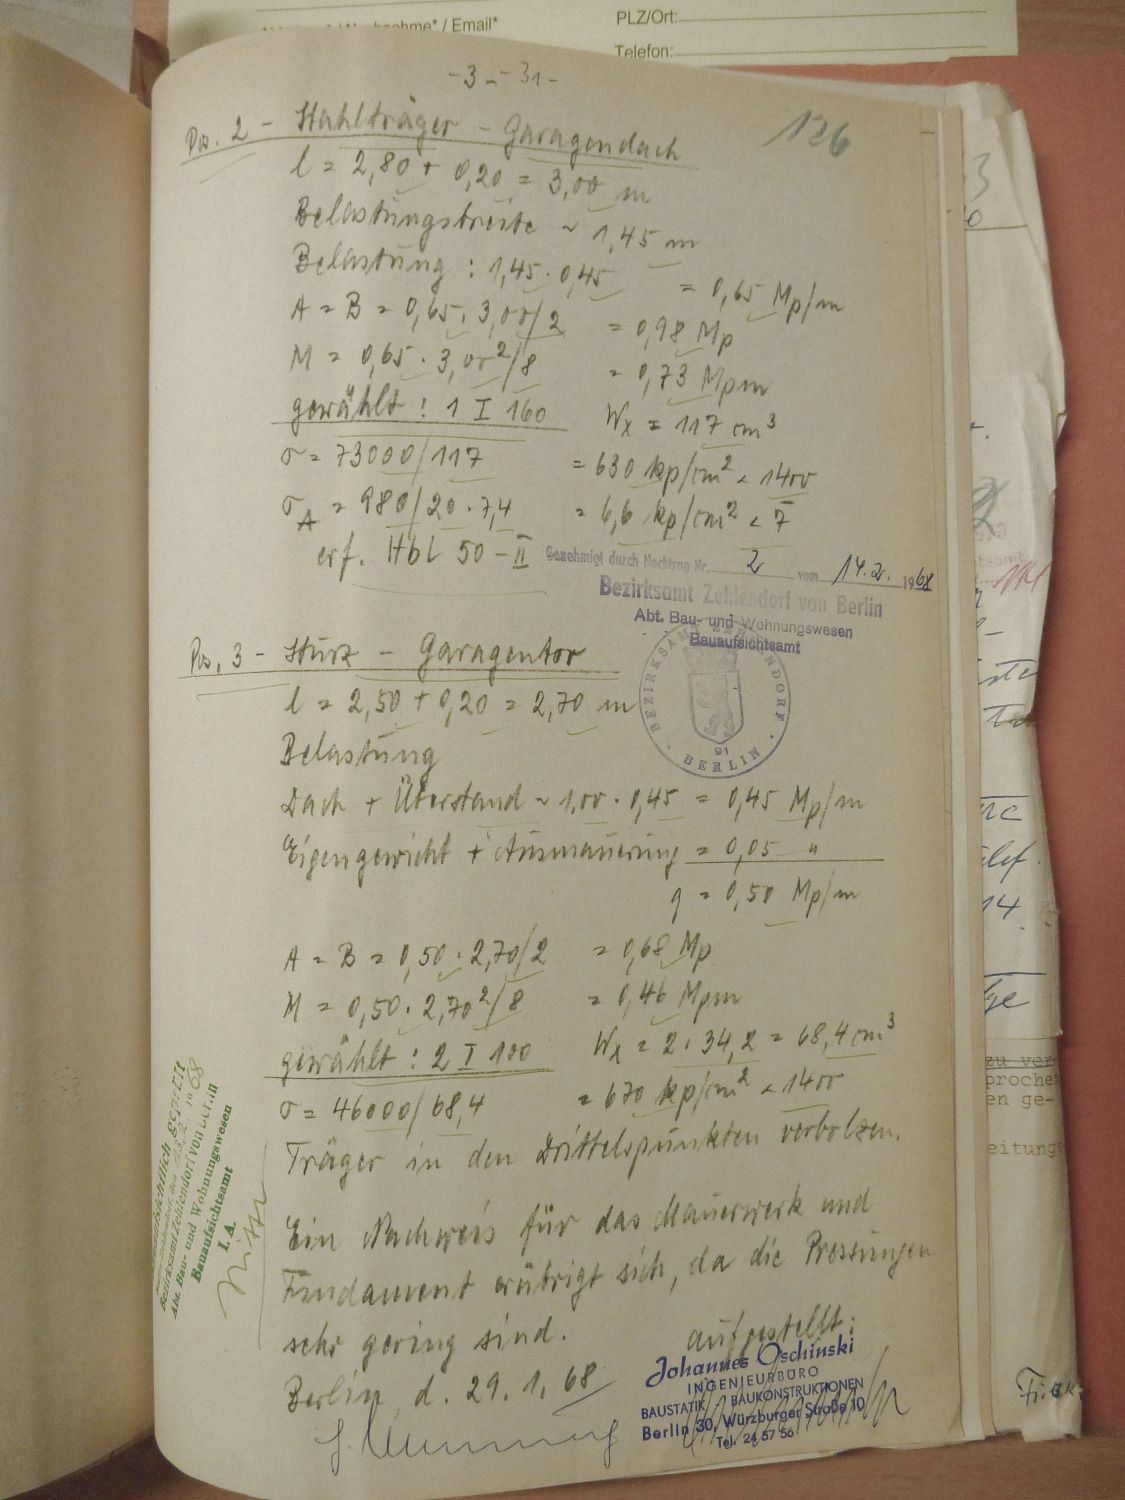 PLZ/Ort:
/ Email*
Telefon:
- 3 - - 31 -
126
Pos. 2 - Stahlträger - Garagendach
l = 2,80 + 0,20 = 3,00 m
Belastungsbreite ~ 1,45 m
Belastung : 1,45 · 0,45 = 0,65 Mp/m
A = B = 0,65 · 3,00/2 = 0,98 Mp
M = 0,65 · 3,00²/8 = 0,73 Mpm
gewählt : 1 I 160 Wx = 117 cm³
σ = 73000/117 = 630 kp/cm² < 1400
σA = 980/20 · 7,4 = 6,6 kp/cm² < 7
erf. Hbl 50 - II
Genehmigt durch Nachtrag Nr. 2 vom 14.2. 1968
Bezirksamt Zehlendorf von Berlin
Abt. Bau- und Wohnungswesen
Bauaufsichtsamt
BEZIRKSAMT ZEHLENDORF · BERLIN ·
Pos. 3 - Sturz - Garagentor
l = 2,50 + 0,20 = 2,70 m
Belastung
Dach + Überstand ~ 1,00 · 0,45 = 0,45 Mp/m
Eigengewicht + Ausmauerung = 0,05 "
q = 0,50 Mp/m
A = B = 0,50 · 2,70/2 = 0,68 Mp
M = 0,50 · 2,70²/8 = 0,46 Mpm
gewählt : 2 I 100 Wx = 2 · 34,2 = 68,4 cm³
σ = 46000/68,4 = 670 kp/cm² < 1400
Träger in den Drittelspunkten verbolzen.
Ein Nachweis für das Mauerwerk und
Fundament erübrigt sich, da die Pressungen
sehr gering sind.
aufgestellt:
Berlin, d. 29. 1. 68
Johannes Oschinski
INGENIEURBÜRO
BAUSTATIK BAUKONSTRUKTIONEN
Berlin 30, Würzburger Straße 10
Tel. 24 57 56
Bezirksamt Zehlendorf von Berlin
Abt. Bau- und Wohnungswesen
Bauaufsichtsamt
I. A.
zu ver-
proche
en ge-
eitung